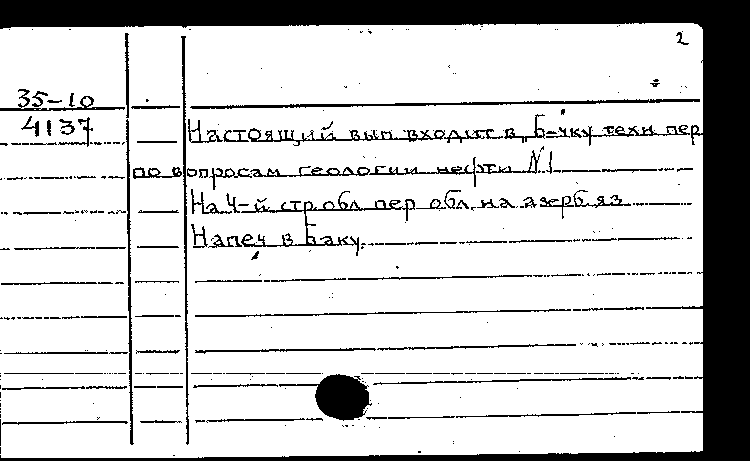 2
35-10
4137
Настоящий вып входит в „Б-чку техн пер
по вопросам геологии нефти N1
На 4-й стр. обл. пер обл. на азерб яз
Напеч в Баку.